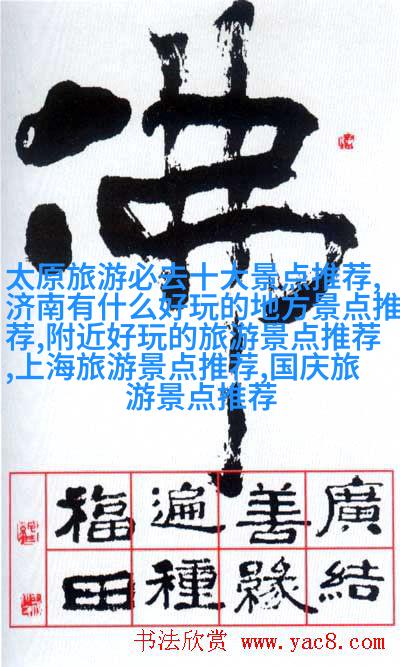 佛
太原旅游必去十大景点推荐,
济南有什么好玩的地方景点推
荐,附近好玩的旅游景点推荐
,上海旅游景点推荐,国庆旅
游景点推荐
廣結
善緣
遍種
福田
书法欣赏 www.yac8.com